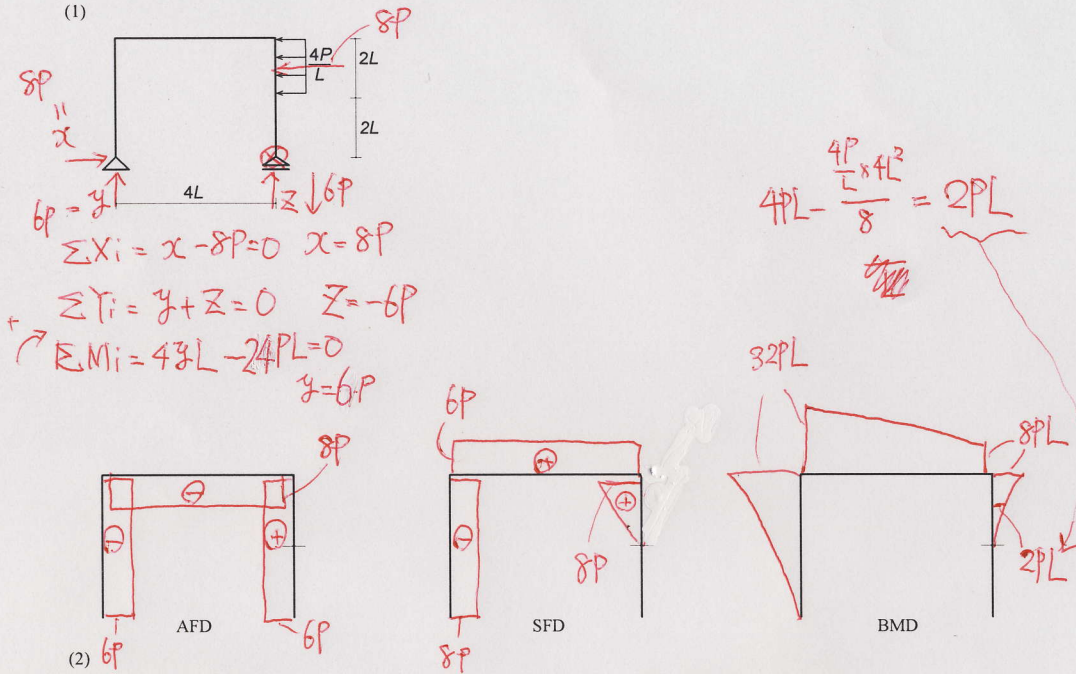 (1)
8P
4P
L
2L
2L
8P
=
x
4L
6P = y
z
6P
ΣXi = x - 8P = 0 x = 8P
ΣYi = y + Z = 0 Z = -6P
+
ΣMi = 4yL - 24PL = 0
y = 6P
4PL - (4P/L × 4L²)/8 = 2PL
8P
⊖
⊖
+
6P
6P
AFD
6P
+
⊖
+
8P
8P
SFD
32PL
8PL
2PL
BMD
(2)